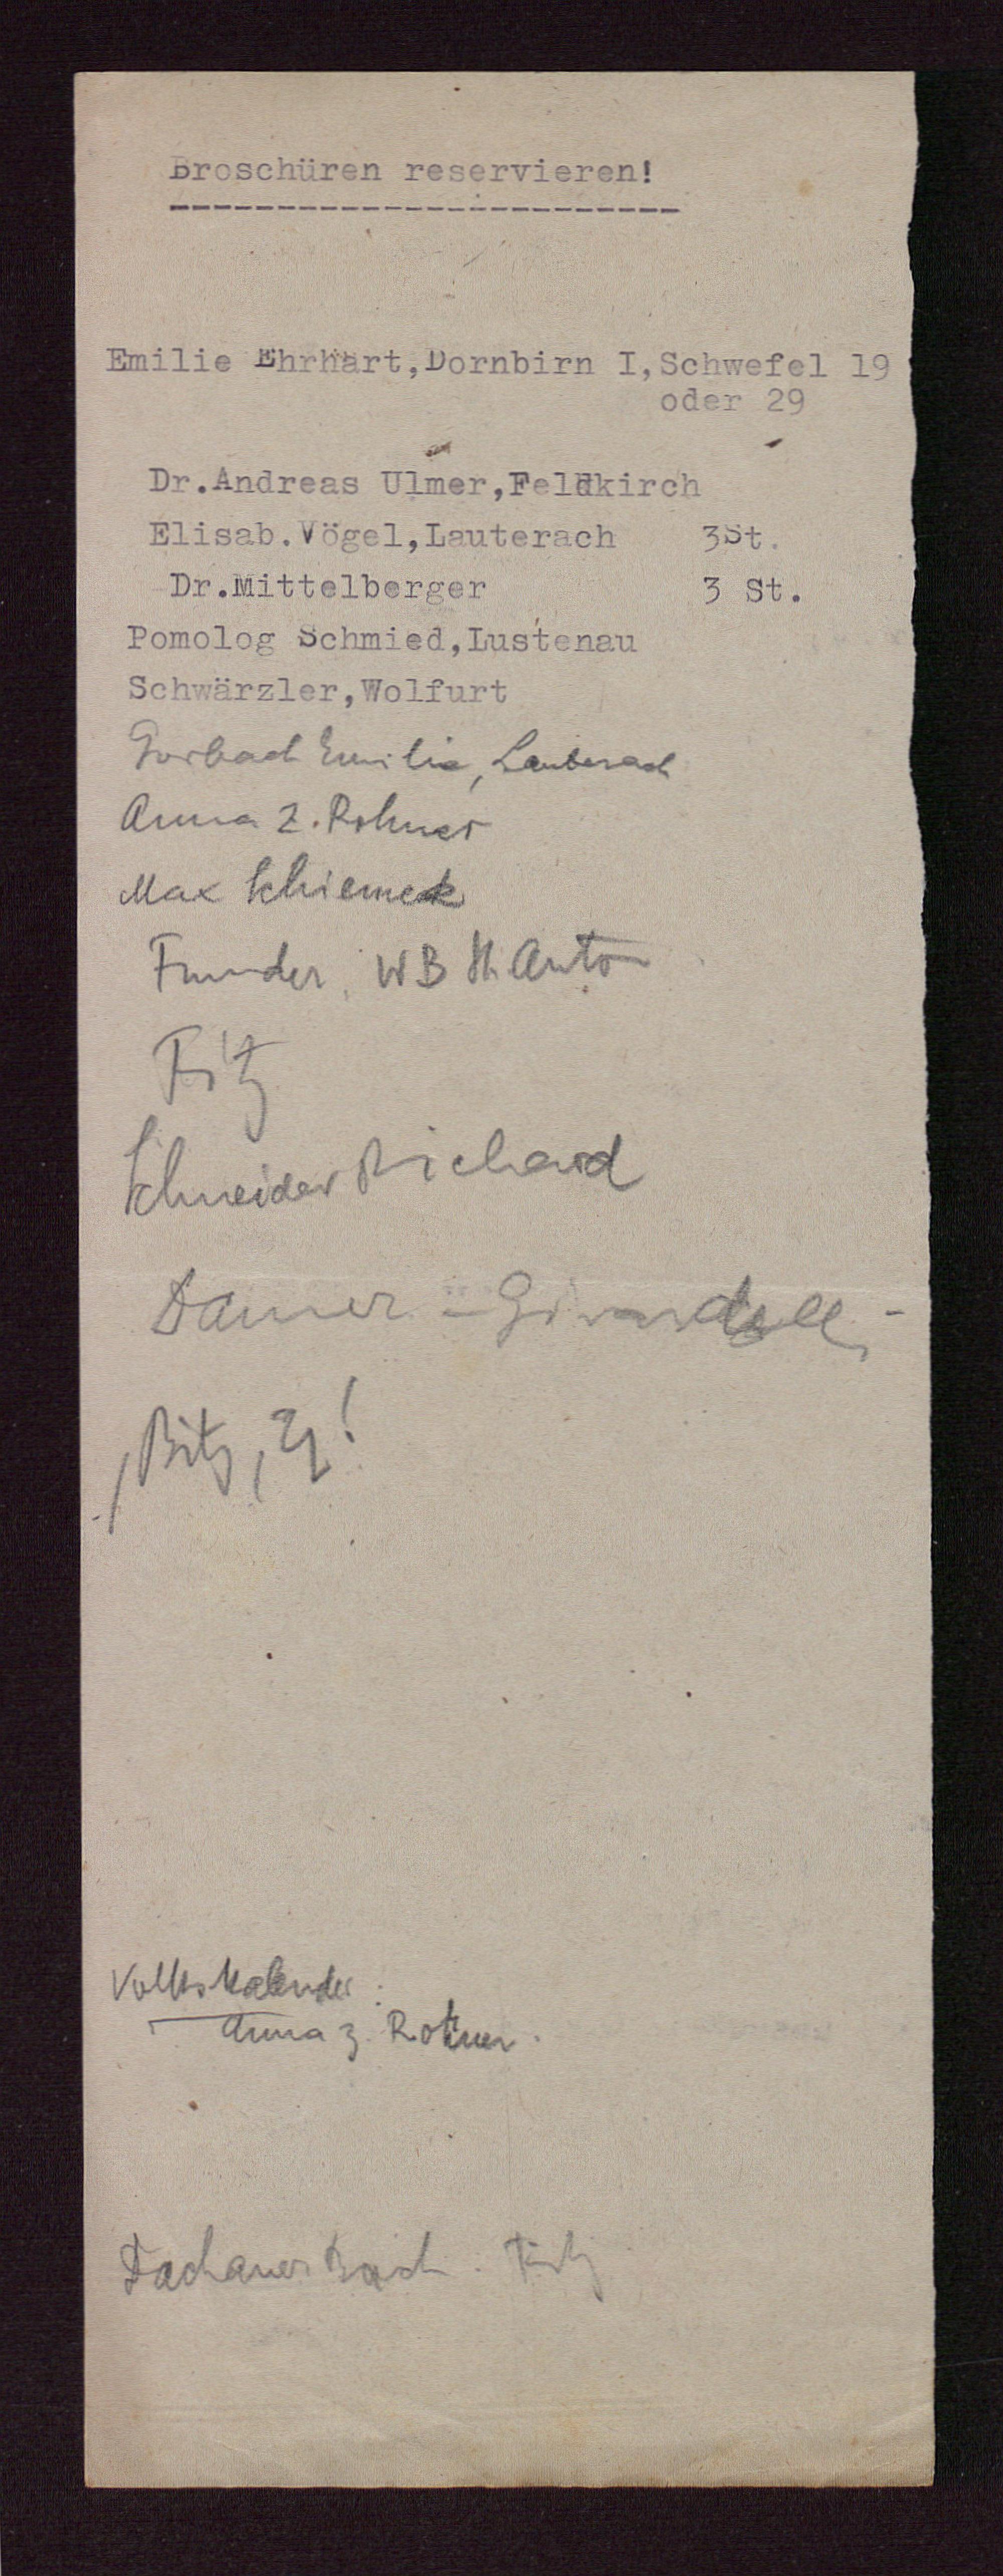 Broschüren reservieren!
Emilie Ehrhart, Dornbirn I, Schwefel 19
oder 29
Dr.Andreas Ulmer, Feldkirch
Elisab. Vögel, Lauterach 3St.
Dr.Mittelberger 3 St.
Pomolog Schmied, Lustenau
Schwärzler, Wolfurt
Gorbach Emilie, Lauterach
Anna z. Rohner
Max Schiemek
Funder, WB
Fitz
Schneider Richard
Girardelli
Volkskalender:
Anna z. Rohner.
Dachauer Fitz